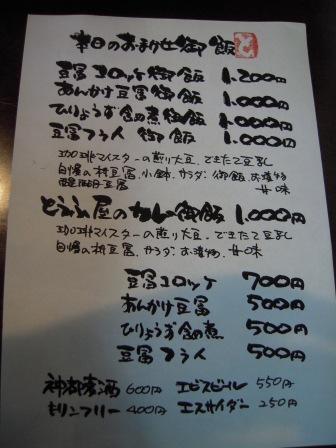 本日のおまかせ御飯
豆冨コロッケ御飯 1,200円
あんかけ豆冨御飯 1,000円
ひりょうず含め煮御飯 1,000円
豆冨フライ御飯 1,000円
珈琲マイスターの煎り大豆、できたて豆乳
自慢の枡豆冨、小鉢、サラダ、御飯、お漬物
豆冨 甘味
とうふ屋のカレー御飯 1,000円
珈琲マイスターの煎り大豆、できたて豆乳
自慢の枡豆冨、サラダ、お漬物、甘味
豆冨コロッケ 700円
あんかけ豆冨 500円
ひりょうず含め煮 500円
豆冨フライ 500円
神都麦酒 600円 エビスビール 550円
キリンフリー 400円 エスサイダー 250円